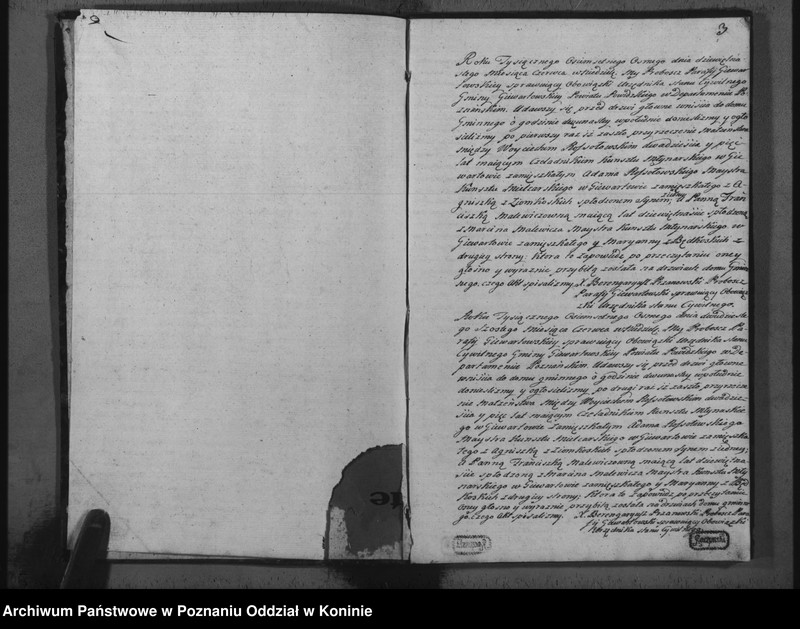 3
Roku Tysiącznego Osiemsetnego Osmego dnia dziewiętna
stego Miesiąca Czerwca w Niedzielę. My Proboscz Parafji Giewar
towskiey sprawuiący Obowiązki Urzędnika stanu Cywilnego
Gminy Giewartowskiey Powiatu Powidzkiego w Departamencie Po
znańskim. Udawszy się przed drzwi główne wniścia do domu
Gminnego o godzinie dwunastey w południe donieślizmy y ogło
siliśmy po pierwszy raz iż zaszło przyrzeczenie małżeństwa
między Woyciechem Rossołowskim dwadzieścia y pięć
lat maiącym Czeladnikiem Kunsztu Młynarskiego w Gie
wartowie zamięszkałym Adama Rossołowskiego Maystra
Kunsztu Mielcarskiego w Giewartowie zamięszkałego z A
gnieszką z Ziomkoskich spłodzonem synem, a Panną Fran
ciszką Malewiczowną maiącą lat dziewiętnaście spłodzoną
z Marcina Malewicza Maystra Kunsztu Młynarskiego w
Giewartowie zamięszkałego y Maryanny z Będkoskich z
drugiey strony; która to zapowiedź po przeczytaniu oney
głośno y wyraźnie przybitą została na drzwiach domu Gmin
nego, czego Akt spisaliśmy. X. Proboscz
Parafji Giewartowski sprawuiący Obowiąz
ki Urzędnika stanu Cywilnego.
Roku Tysiącznego Osiemsetnego Osmego dnia dwudzieste
go szóstego Miesiąca Czerwca w Niedzielę. My Proboscz Pa
rafji Giewartowskiey sprawuiący Obowiązki Urzędnika stanu
Cywilnego Gminy Giewartowskiey Powiatu Powidzkiego w De
partamencie Poznańskim. Udawszy się przed drzwi główne
wniścia do domu gminnego o godzinie dwunastey w południe
donieślizmy y ogłosiliśmy po drugi raz iż zaszło przyrzecze
nie małżeństwa między Woyciechem Rossołowskim dwadzie
ścia y pięć lat maiącym Czeladnikiem Kunsztu Młynarskie
go w Giewartowie zamięszkałym Adama Rossołowskiego
Maystra Kunsztu Mielcarskiego w Giewartowie zamięszka
łego z Agnieszką z Ziomkoskich spłodzonem synem z iedney;
a Panną Franciszką Malewiczowną maiącą lat dziewiętna
ście spłodzoną z Marcina Malewicza Maystra Kunsztu Mły
narskiego w Giewartowie zamięszkałego y Maryanny z Będ
koskich z drugiey strony; która to zapowiedź po przeczytaniu
oney głośno y wyraźnie przybitą została na drzwiach domu gminne
go, czego Akt spisaliśmy. X. Proboscz Para
fji Giewartowski sprawuiący Obowiązki
Urzędnika stanu Cywilnego
Archiwum Państwowe w Poznaniu Oddział w Koninie